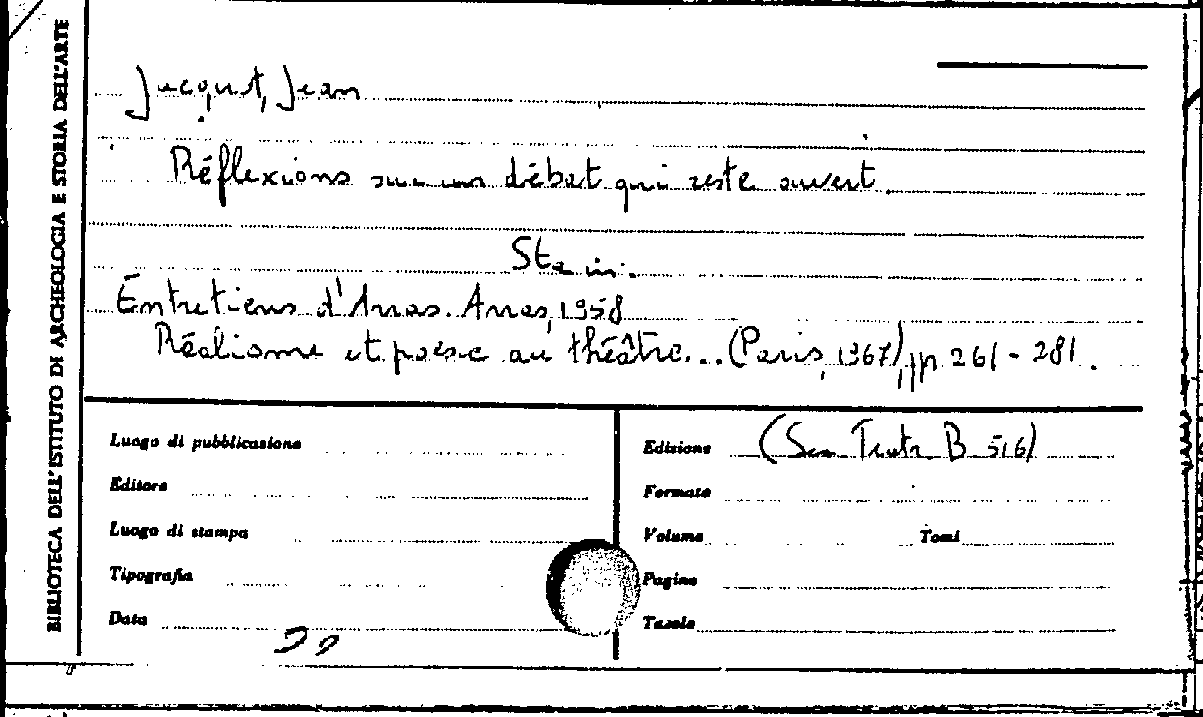 BIBLIOTECA DELL'ISTITUTO DI ARCHEOLOGIA E STORIA DELL'ARTE
Jacquot, Jean
Réflexions sur un débat qui reste ouvert.
Sta in:
Entretiens d'Arras. Arras, 1958
Réalisme et poésie au théâtre... (Paris, 1967), pp. 261 - 281.
Luogo di pubblicazione
Edizione (Sca Teatr. B 516)
Editore
Formato
Luogo di stampa
Volume Tomi
Tipografia
Pagine
Data
Tavole